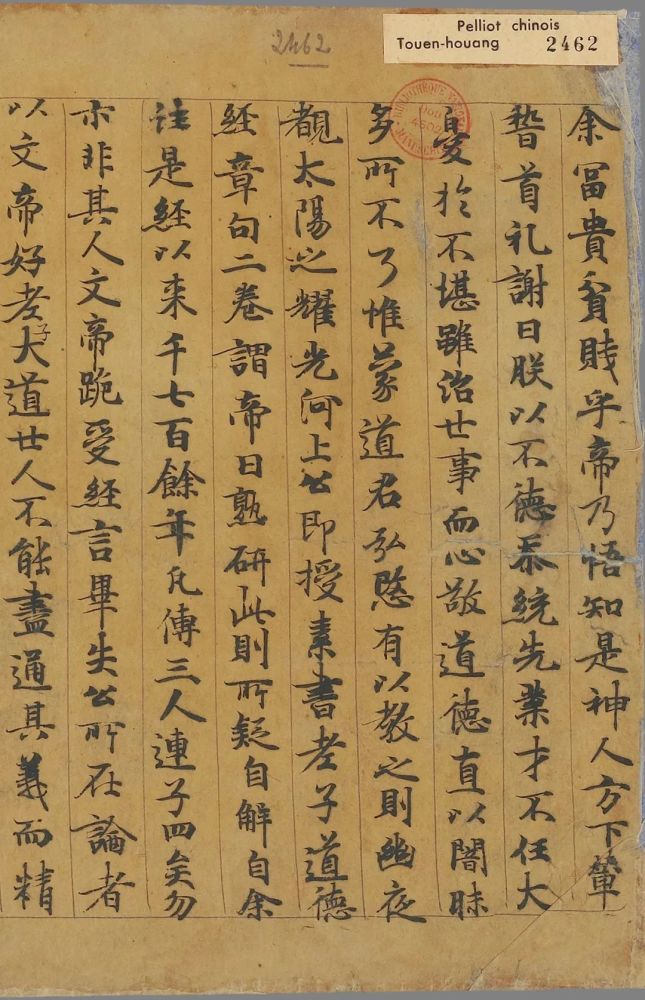 2462
Pelliot chinois
Touen-houang 2462
余冨貴貧賎乎帝乃悟知是神人方下輦
稽首礼謝曰朕以不德忝統先業才不任大
憂於不堪雖治世事而心敬道德直以闇昧
多所不了惟蒙道君弘愍有以教之則幽夜
覩太陽之耀光河上公即授素書老子道德
經章句二卷謂帝曰熟研此則所疑自解自余
註是經以来千七百餘年凡傳三人連子四矣勿
示非其人文帝跪受經言畢失公所在論者
以文帝好老子大道世人不能盡通其義而精